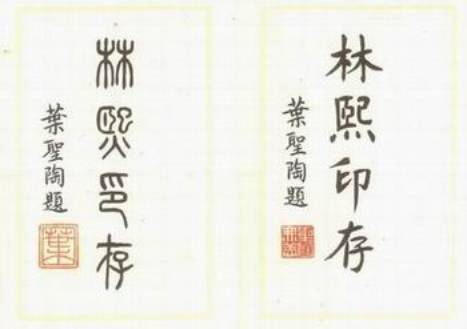 林熙印存
葉聖陶題
林熙印存
葉聖陶題
葉